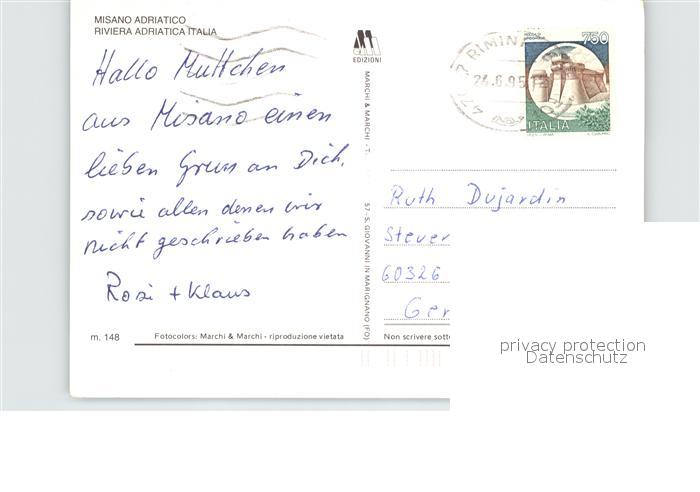 MISANO ADRIATICO
RIVIERA ADRIATICA ITALIA
Hallo Muttchen
aus Misano einen
lieben Gruss an Dich,
sowie allen denen wir
nicht geschrieben haben
Rosi + Klaus
m. 148
Fotocolors: Marchi & Marchi - riproduzione vietata
EDIZIONI
MARCHI & MARCHI - T.
57 - S. GIOVANNI IN MARIGNANO (FO)
RIMINI
24.6.95
750
ITALIA
Ruth Dujardin
Stever
60326
Ger
Non scrivere sotto
privacy protection
Datenschutz